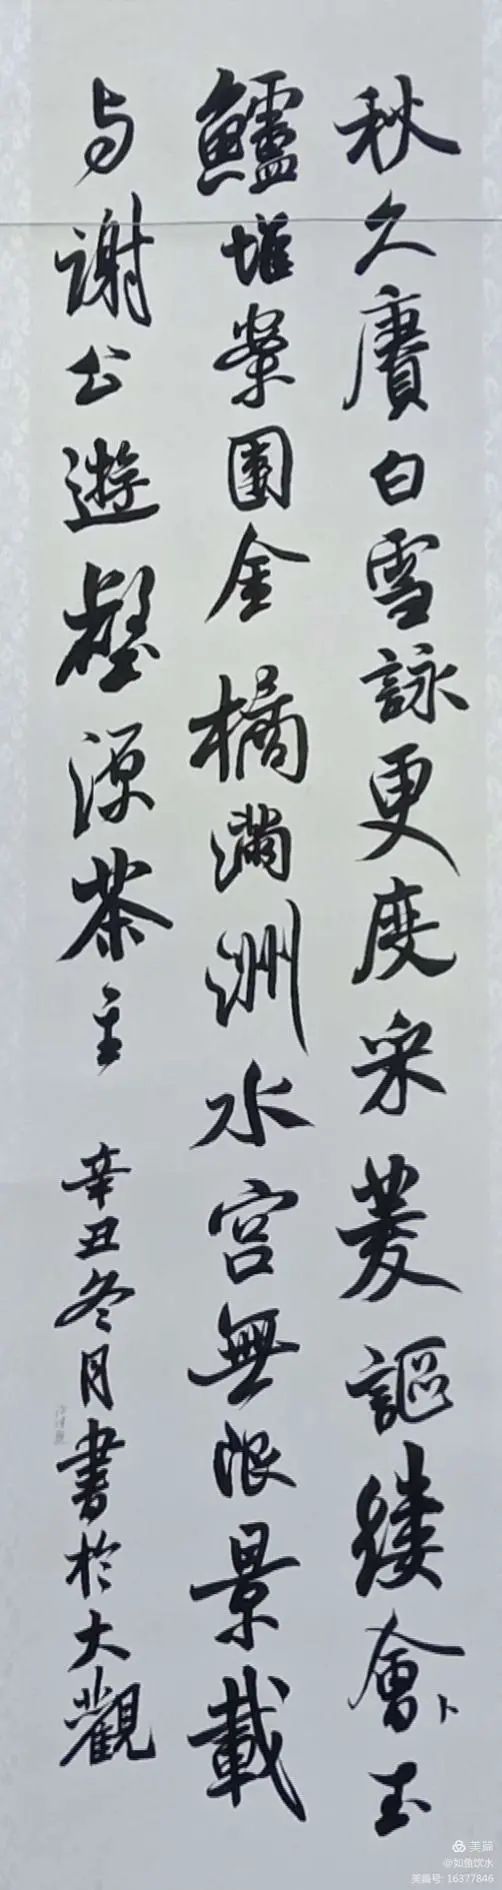 秋久賡白雪詠更度采菱謳縷會玉
鱸堆案團金橘滿洲水宮無限景載
与謝公遊壑源茶主 辛丑冬月書於大觀
美篇
@如鱼饮水
美篇号: 16377846